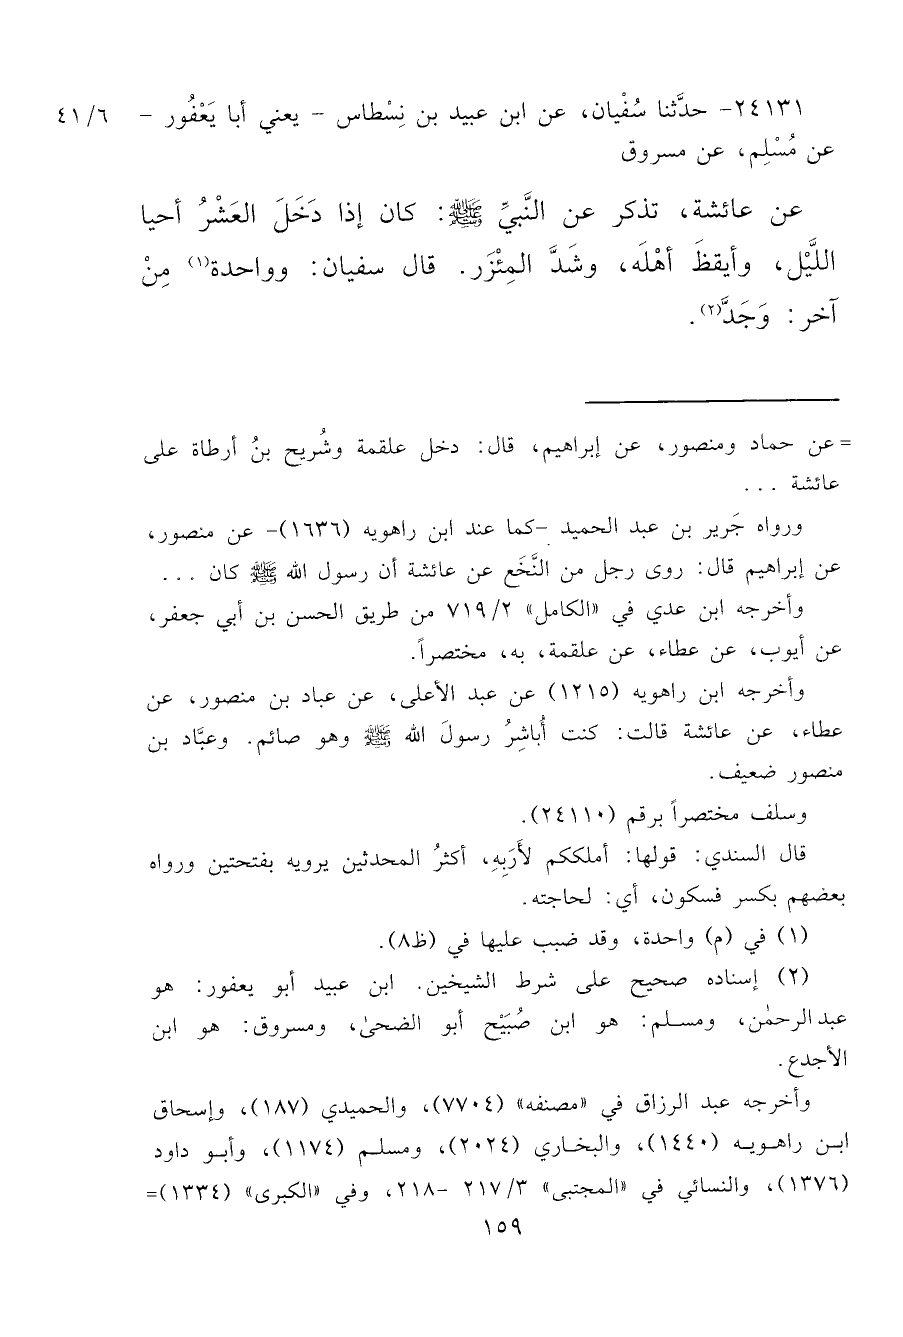 ٢٤١٣١- حدَّثنا سُفْيان، عن ابن عبيد بن نِسْطاس - يعني أبا يَعْفُور - ٤١/٦
عن مُسْلِم، عن مسروق
عن عائشة، تذكر عن النَّبيِّ ﷺ: كان إذا دَخَلَ العَشْرُ أحيا
اللَّيْل، وأيقظَ أهْلَه، وشَدَّ المِئْزَر. قال سفيان: وواحدة(١) مِنْ
آخر: وَجَدَّ(٢).
= عن حماد ومنصور، عن إبراهيم، قال: دخل علقمة وشُريح بنُ أرطاة على
عائشة ...
ورواه جَرير بن عبد الحميد -كما عند ابن راهويه (١٦٣٦)- عن منصور،
عن إبراهيم قال: روى رجل من النَّخَع عن عائشة أن رسول الله ﷺ كان ...
وأخرجه ابن عدي في «الكامل» ٧١٩/٢ من طريق الحسن بن أبي جعفر،
عن أيوب، عن عطاء، عن علقمة، به، مختصراً.
وأخرجه ابن راهويه (١٢١٥) عن عبد الأعلى، عن عباد بن منصور، عن
عطاء، عن عائشة قالت: كنت أُباشِرُ رسولَ الله ﷺ وهو صائم. وعبَّاد بن
منصور ضعيف.
وسلف مختصراً برقم (٢٤١١٠).
قال السندي: قولها: أملككم لأَرَبِهِ، أكثرُ المحدثين يرويه بفتحتين ورواه
بعضهم بكسر فسكون، أي: لحاجته.
(١) في (م) واحدة، وقد ضبب عليها في (ظ٨).
(٢) إسناده صحيح على شرط الشيخين. ابن عبيد أبو يعفور: هو
عبدالرحمٰن، ومسلم: هو ابن صُبَيْح أبو الضحىٰ، ومسروق: هو ابن
الأجدع.
وأخرجه عبد الرزاق في «مصنفه» (٧٧٠٤)، والحميدي (١٨٧)، وإسحاق
ابن راهويه (١٤٤٠)، والبخاري (٢٠٢٤)، ومسلم (١١٧٤)، وأبو داود
(١٣٧٦)، والنسائي في «المجتبى» ٢١٧/٣ -٢١٨، وفي «الكبرى» (١٣٣٤)=
١٥٩